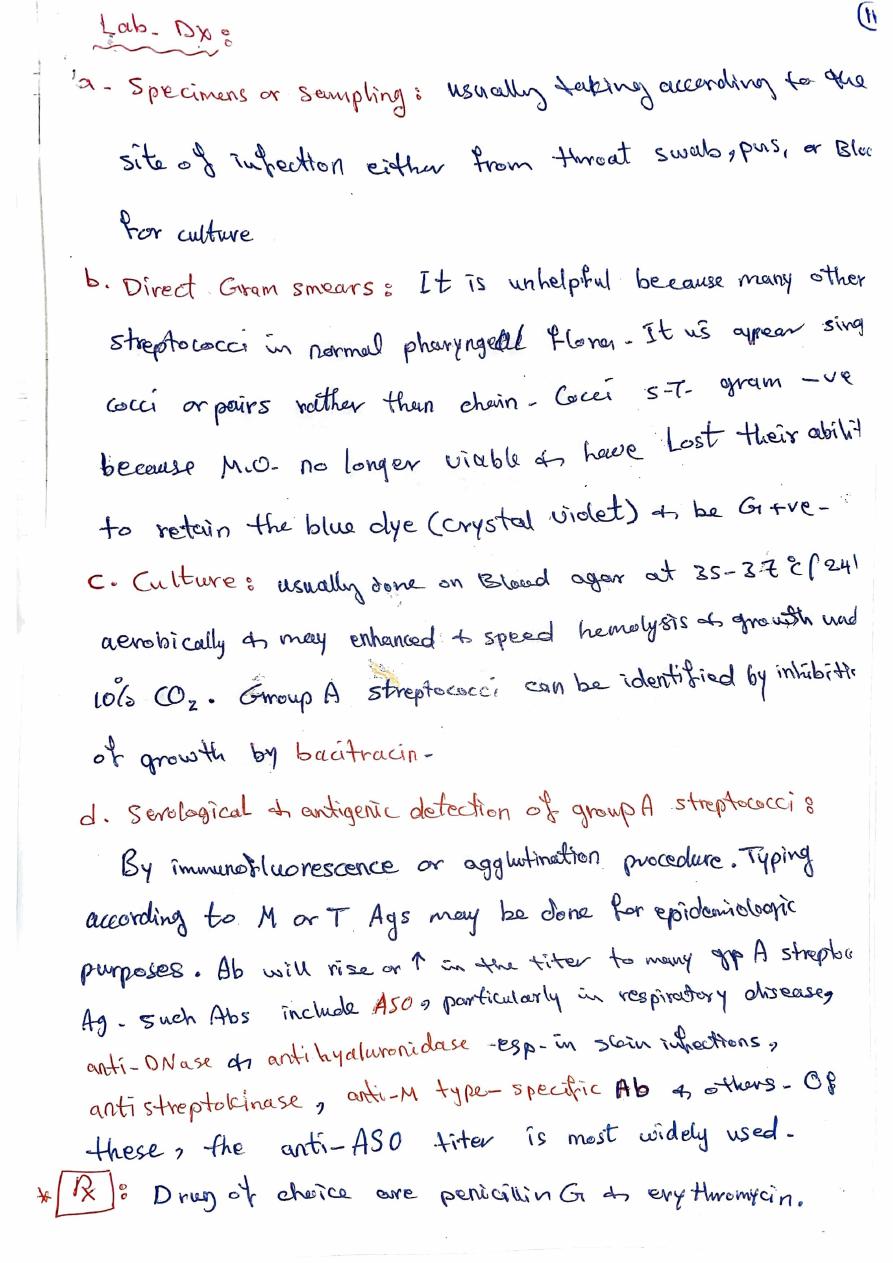 11
Lab. Dx:
a- Specimens or sampling: usually taking according to the
site of infection either from throat swab, pus, or Bloo
for culture
b. Direct Gram smears: It is unhelpful because many other
streptococci in normal pharyngeal flora. It us appear sing
cocci or pairs rather than chain. Cocci s.T. gram -ve
because M.O. no longer viable & have Lost their abilit
to retain the blue dye (crystal violet) & be G+ve.
C. Culture: usually done on Blood agar at 35-37 °C (24
aerobically & may enhanced & speed hemolysis & growth und
10% CO2. Group A streptococci can be identified by inhibitio
of growth by bacitracin.
d. Serological & antigenic detection of group A streptococci:
By immunofluorescence or agglutination procedure. Typing
according to M or T Ags may be done for epidemiologic
purposes. Ab will rise or ↑ in the titer to many gp A strepto
Ag. such Abs include ASO, particularly in respiratory disease,
anti-DNase & antihyaluronidase -esp. in skin infections,
antistreptokinase, anti-M type-specific Ab & others. Of
these, the anti-ASO titer is most widely used.
* Rx: Drug of choice are penicillin G & erythromycin.